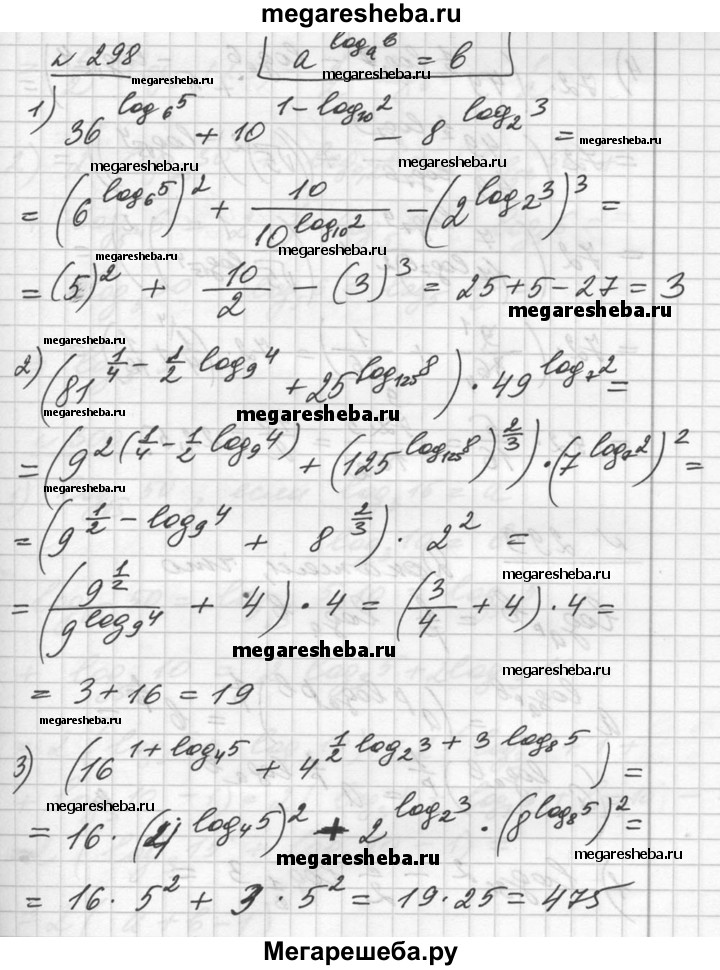 megaresheba.ru
№ 298 a^{log_a b} = b
megaresheba.ru megaresheba.ru
1) 36^{log_6 5} + 10^{1 - log_{10} 2} - 8^{log_2 3} =
megaresheba.ru
megaresheba.ru megaresheba.ru
= (6^{log_6 5})^2 + 10/10^{log_{10} 2} - (2^{log_2 3})^3 =
megaresheba.ru
= (5)^2 + 10/2 - (3)^3 = 25 + 5 - 27 = 3
megaresheba.ru
megaresheba.ru
2) (81^{1/4 - 1/2 log_9 4} + 25^{log_{125} 8}) · 49^{log_7 2} =
megaresheba.ru megaresheba.ru
= (9^{2(1/4 - 1/2 log_9 4)} + (125^{log_{125} 8})^{2/3}) · (7^{log_7 2})^2 =
= (9^{1/2 - log_9 4} + 8^{2/3}) · 2^2 =
megaresheba.ru
= (9^{1/2}/9^{log_9 4} + 4) · 4 = (3/4 + 4) · 4 =
megaresheba.ru megaresheba.ru
= 3 + 16 = 19
megaresheba.ru
3) (16^{1 + log_4 5} + 4^{1/2 log_2 3 + 3 log_8 5}) =
megaresheba.ru
= 16 · (4^{log_4 5})^2 + 2^{log_2 3} · (8^{log_8 5})^2 =
megaresheba.ru megaresheba.ru
= 16 · 5^2 + 3 · 5^2 = 19 · 25 = 475
Мегарешеба.ру